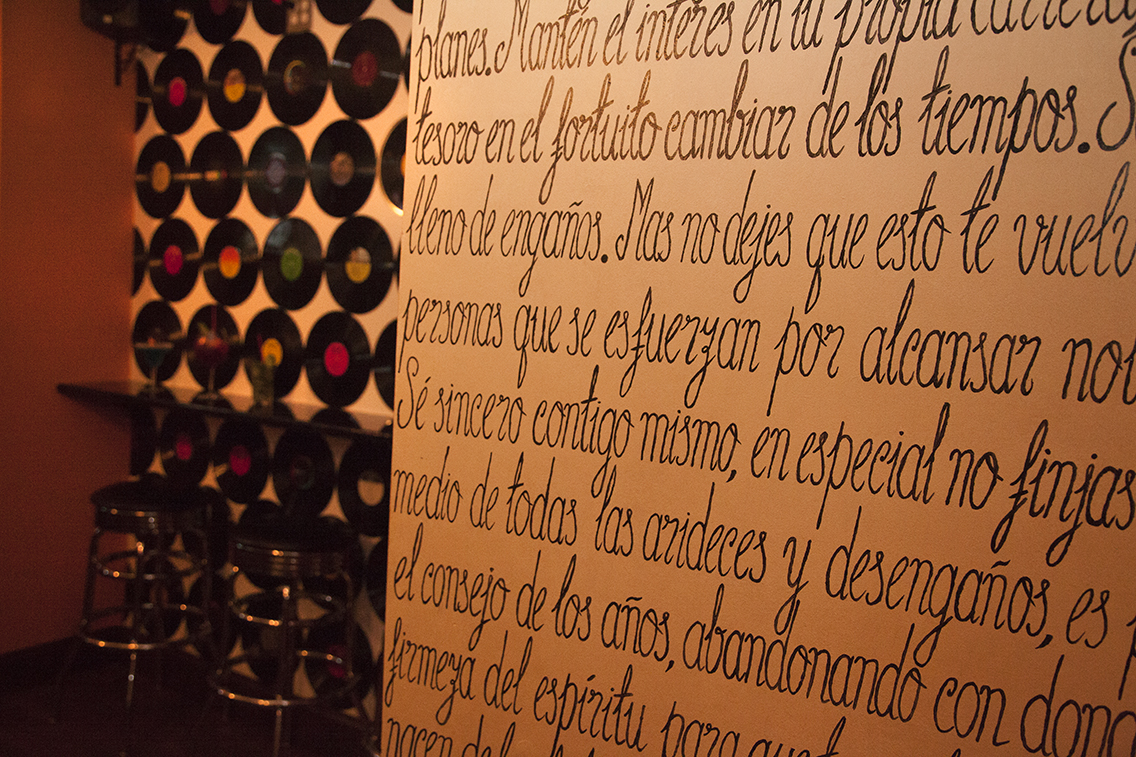 planes. Mantén el interés en tu propia carrera
tesoro en el fortuito cambiar de los tiempos.
lleno de engaños. Mas no dejes que esto te vuelv
personas que se esfuerzan por alcansar
Sé sincero contigo mismo, en especial no finjas
medio de todas las arideces y desengaños, es
el consejo de los años, abandonando con
firmeza del espíritu para que
nacen de